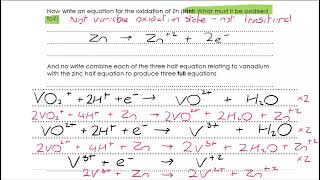 Now write an equation for the oxidation of Zn (Hint: What must it be oxidised
to?) Not variable oxidation state - not transitional
Zn → Zn⁺² + 2e⁻
And no write combine each of the three half equation relating to vanadium
with the zinc half equation to produce three full equations
VO₂⁺ + 2H⁺ + e⁻ → VO²⁺ + H₂O ×2
2VO₂⁺ + 4H⁺ + Zn → 2VO²⁺ + 2H₂O + Zn⁺²
VO²⁺ + 2H⁺ + e⁻ → V³⁺ + H₂O ×2
2VO²⁺ + 4H⁺ + Zn → 2V³⁺ + 2H₂O + Zn⁺²
V³⁺ + e⁻ → V⁺² ×2
2V³⁺ + Zn → 2V²⁺ + Zn⁺²